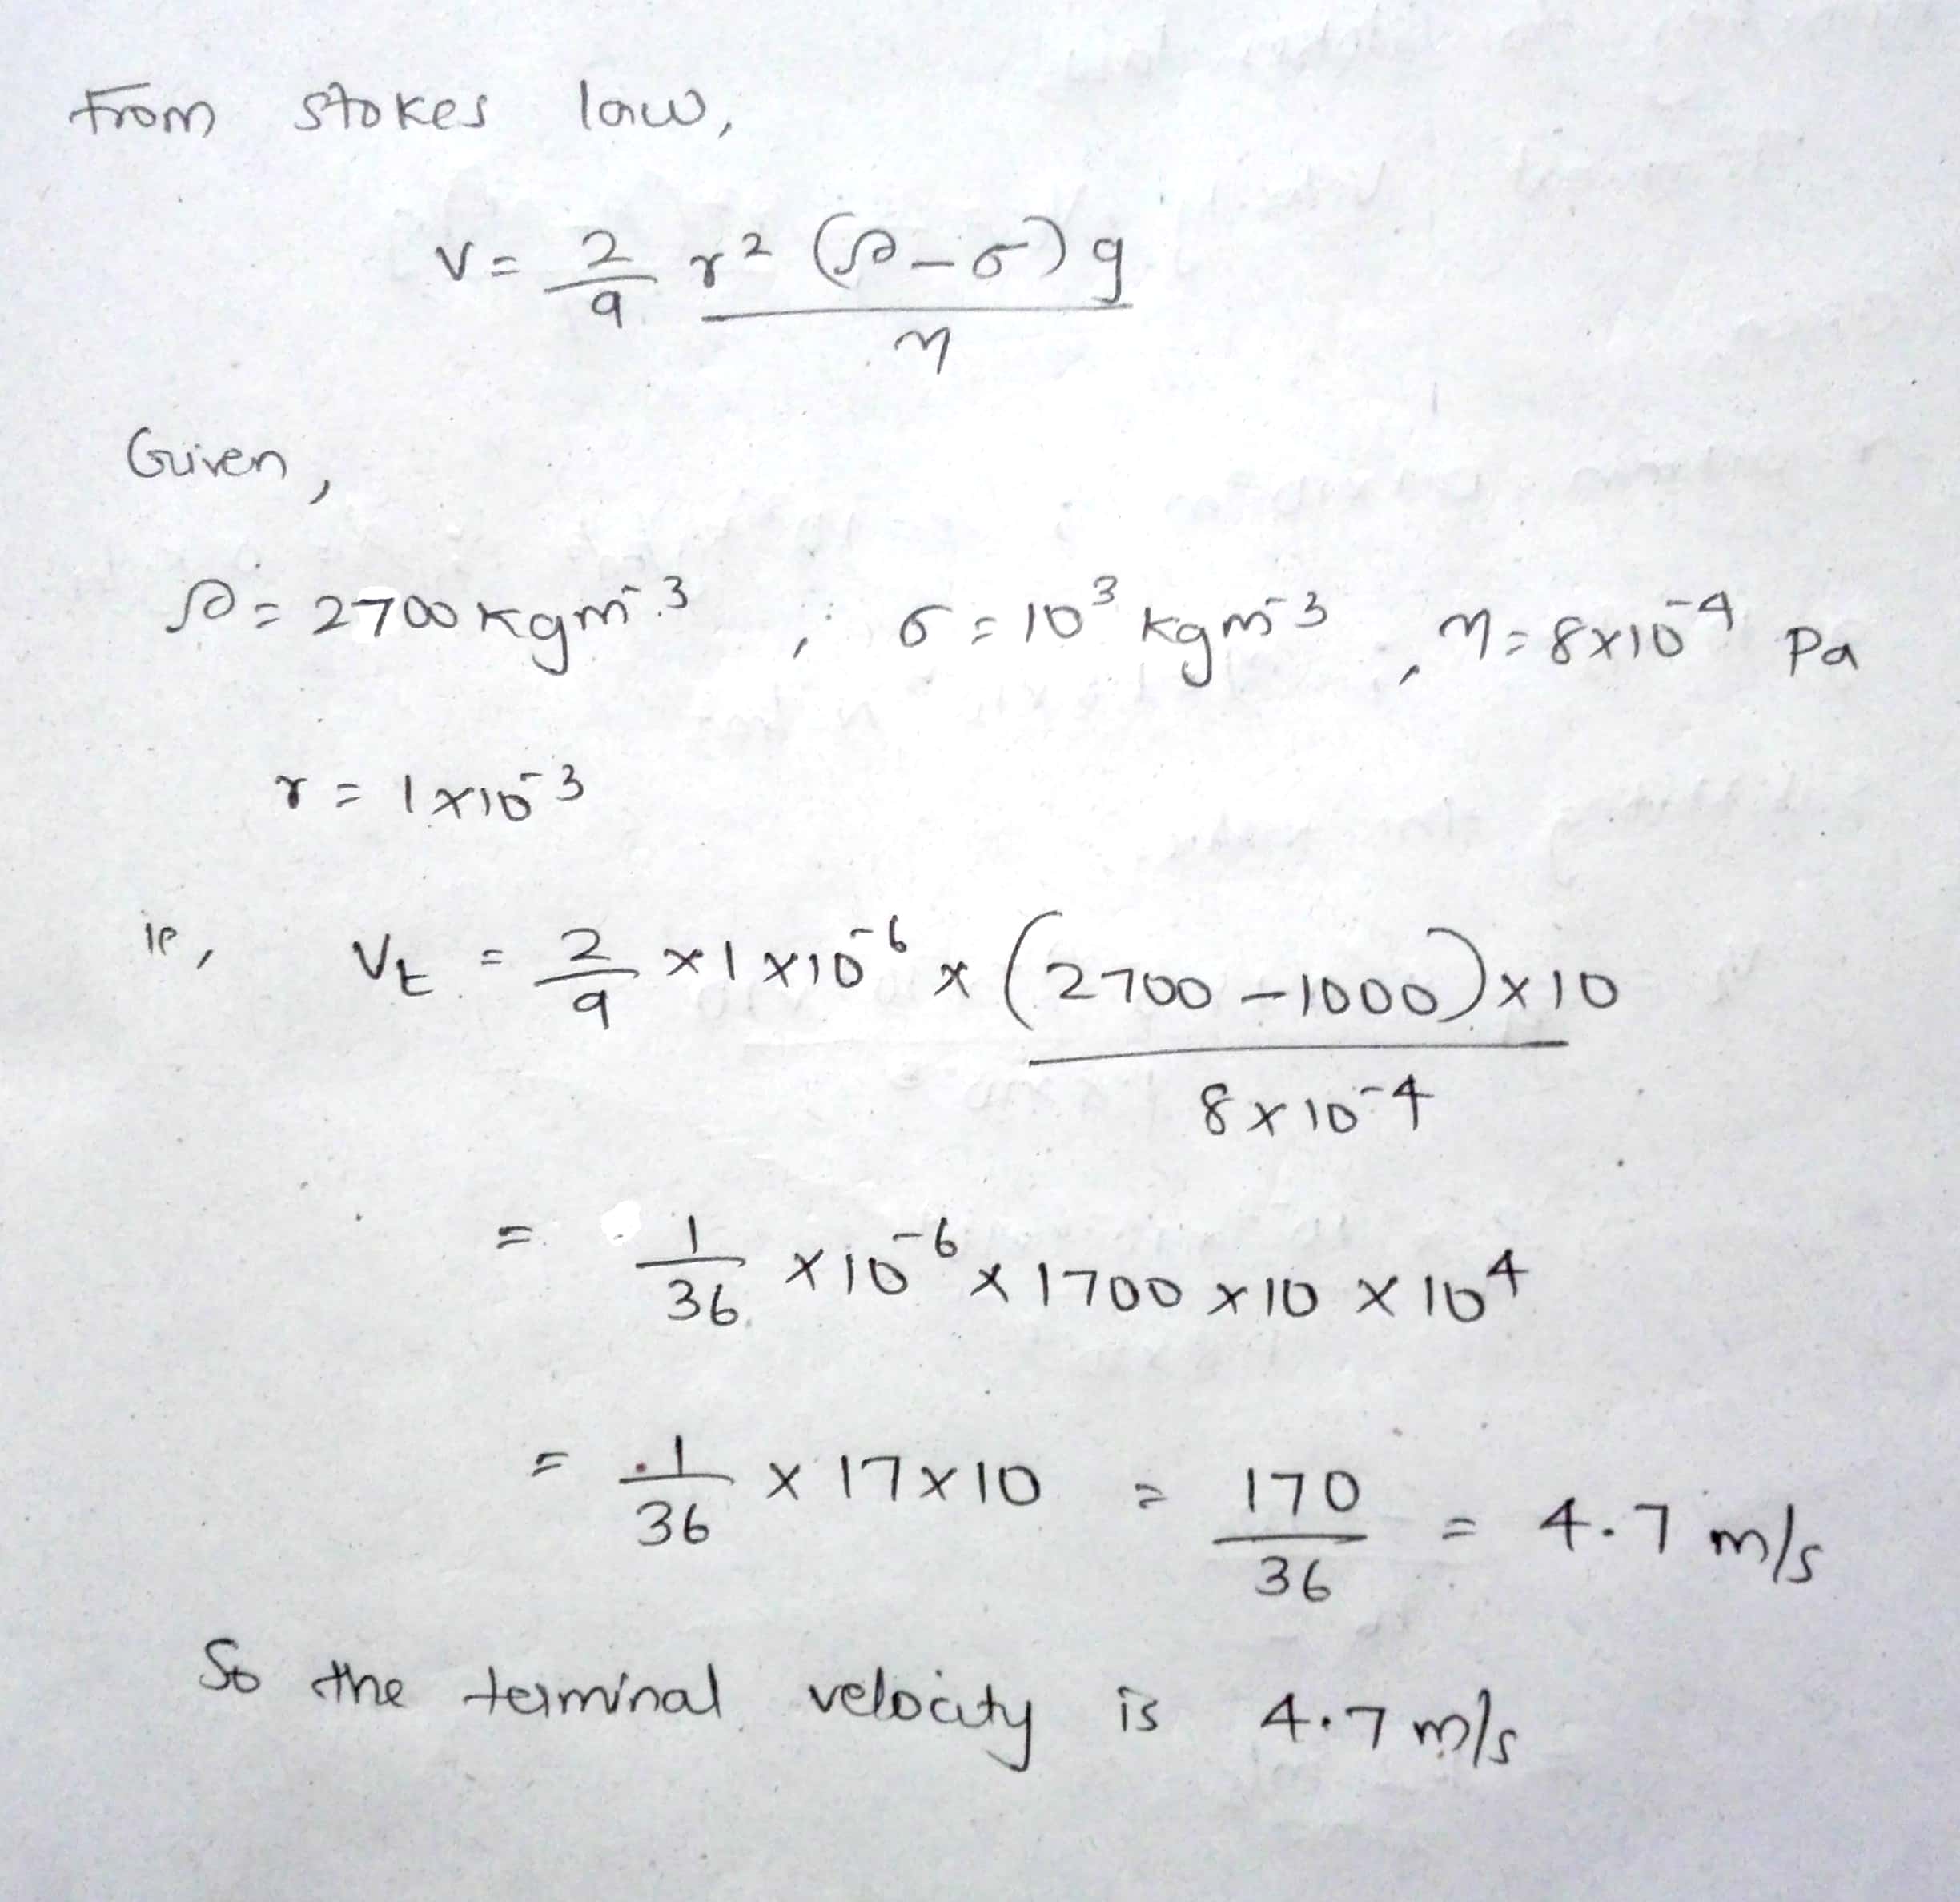 From stokes law,
V = 2/9 r² (ρ - σ) g / η
Given,
ρ = 2700 kgm⁻³ , σ = 10³ kgm⁻³ , η = 8x10⁻⁴ Pa
r = 1x10⁻³
ie, Vt = 2/9 x 1 x 10⁻⁶ x (2700 - 1000) x 10 / 8 x 10⁻⁴
= 1/36 x 10⁻⁶ x 1700 x 10 x 10⁴
= 1/36 x 17 x 10 = 170/36 = 4.7 m/s
So the terminal velocity is 4.7 m/s